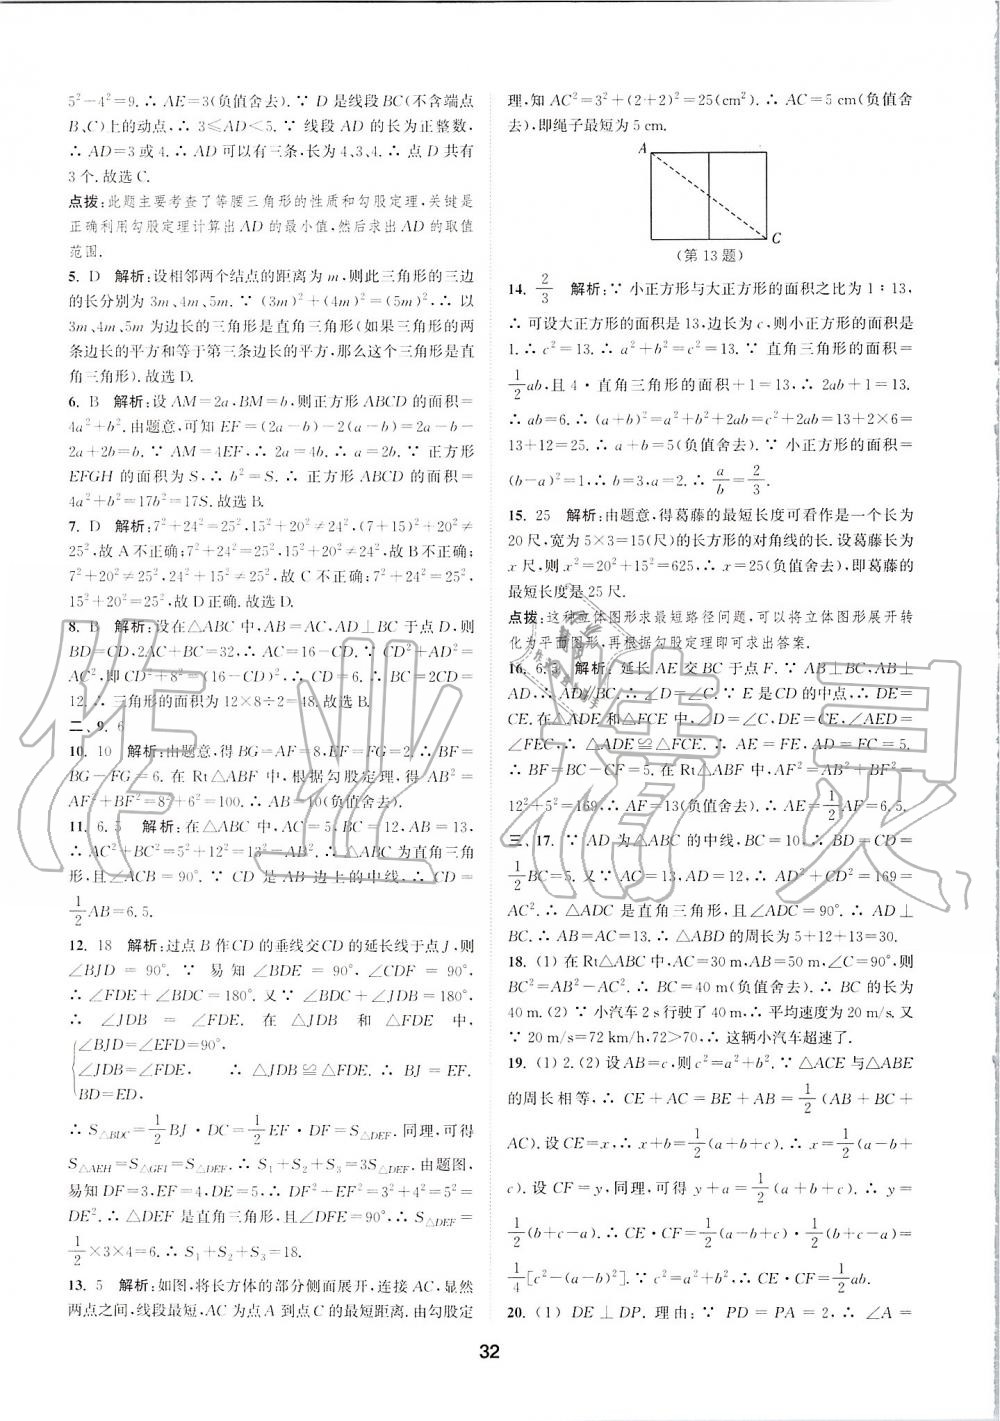 5²-4²=9.∴ AE=3(负值舍去).∵ D是线段BC(不含端点
B、C)上的动点,∴ 3≤AD<5.∵ 线段AD的长为正整数,
∴ AD=3或4.∴ AD可以有三条,长为4、3、4.∴ 点D共有
3个.故选C.
点拨:此题主要考查了等腰三角形的性质和勾股定理,关键是
正确利用勾股定理计算出AD的最小值,然后求出AD的取值
范围.
5. D 解析:设相邻两个结点的距离为m,则此三角形的三边
的长分别为3m、4m、5m.∵ (3m)²+(4m)²=(5m)²,∴ 以
3m、4m、5m为边长的三角形是直角三角形(如果三角形的两
条边长的平方和等于第三条边长的平方,那么这个三角形是直
角三角形).故选D.
6. B 解析:设AM=2a,BM=b,则正方形ABCD的面积=
4a²+b².由题意,可知EF=(2a-b)-2(a-b)=2a-b-
2a+2b=b.∵ AM=4EF,∴ 2a=4b.∴ a=2b.∵ 正方形
EFGH的面积为S,∴ b²=S.∴ 正方形ABCD的面积=
4a²+b²=17b²=17S.故选B.
7. D 解析:7²+24²=25²,15²+20²≠24²,(7+15)²+20²≠
25²,故A不正确;7²+24²=25²,15²+20²≠24²,故B不正确;
7²+20²≠25²,24²+15²≠25²,故C不正确;7²+24²=25²,
15²+20²=25²,故D正确.故选D.
8. B 解析:设在△ABC中,AB=AC,AD⊥BC于点D,则
BD=CD,2AC+BC=32,∴ AC=16-CD.∵ CD²+AD²=
AC²,即CD²+8²=(16-CD)²,∴ CD=6.∴ BC=2CD=
12.∴ 三角形的面积为12×8÷2=48.故选B.
二、9. 6
10. 10 解析:由题意,得BG=AF=8,EF=FG=2.∴ BF=
BG-FG=6.在Rt△ABF中,根据勾股定理,得AB²=
AF²+BF²=8²+6²=100.∴ AB=10(负值舍去).
11. 6.5 解析:在△ABC中,AC=5,BC=12,AB=13,
∴ AC²+BC²=5²+12²=13²=AB².∴ △ABC为直角三角
形,且∠ACB=90°.∵ CD是AB边上的中线,∴ CD=
1/2AB=6.5.
12. 18 解析:过点B作CD的垂线交CD的延长线于点J,则
∠BJD=90°.∵ 易知∠BDE=90°,∠CDF=90°,
∴ ∠FDE+∠BDC=180°.又∵ ∠BDC+∠JDB=180°,
∴ ∠JDB=∠FDE.在△JDB和△FDE中,
{∠BJD=∠EFD=90°,
∠JDB=∠FDE, ∴ △JDB≌△FDE.∴ BJ=EF.
BD=ED,
∴ S△BDC=1/2BJ·DC=1/2EF·DF=S△DEF.同理,可得
S△AEH=S△GFI=S△DEF.∴ S₁+S₂+S₃=3S△DEF.由题图,
易知DF=3,EF=4,DE=5,∴ DF²+EF²=3²+4²=5²=
DE².∴ △DEF是直角三角形,且∠DFE=90°,∴ S△DEF=
1/2×3×4=6.∴ S₁+S₂+S₃=18.
13. 5 解析:如图,将长方体的部分侧面展开,连接AC,显然
两点之间,线段最短,AC为点A到点C的最短距离.由勾股定
理,知AC²=3²+(2+2)²=25(cm²).∴ AC=5 cm(负值舍
去),即绳子最短为5 cm.
A
C
(第13题)
14. 2/3 解析:∵ 小正方形与大正方形的面积之比为1∶13,
∴ 可设大正方形的面积是13,边长为c,则小正方形的面积是
1.∴ c²=13.∴ a²+b²=c²=13.∵ 直角三角形的面积=
1/2ab,且4·直角三角形的面积+1=13,∴ 2ab+1=13.
∴ ab=6.∴ (a+b)²=a²+b²+2ab=c²+2ab=13+2×6=
13+12=25.∴ a+b=5(负值舍去).∵ 小正方形的面积=
(b-a)²=1,∴ b=3,a=2.∴ a/b=2/3.
15. 25 解析:由题意,得葛藤的最短长度可看作是一个长为
20尺,宽为5×3=15(尺)的长方形的对角线的长.设葛藤长为
x尺,则x²=20²+15²=625,∴ x=25(负值舍去),即葛藤的
最短长度是25尺.
点拨:这种立体图形求最短路径问题,可以将立体图形展开转
化为平面图形,再根据勾股定理即可求出答案.
16. 6.5 解析:延长AE交BC于点F.∵ AB⊥BC,AB⊥
AD,∴ AD∥BC.∴ ∠D=∠C.∵ E是CD的中点,∴ DE=
CE.在△ADE和△FCE中,∠D=∠C,DE=CE,∠AED=
∠FEC,∴ △ADE≌△FCE.∴ AE=FE,AD=FC=5.
∴ BF=BC-FC=5.在Rt△ABF中,AF²=AB²+BF²=
12²+5²=169,∴ AF=13(负值舍去).∴ AE=1/2AF=6.5.
三、17. ∵ AD为△ABC的中线,BC=10,∴ BD=CD=
1/2BC=5.又∵ AC=13,AD=12,∴ AD²+CD²=169=
AC².∴ △ADC是直角三角形,且∠ADC=90°.∴ AD⊥
BC.∴ AB=AC=13.∴ △ABD的周长为5+12+13=30.
18. (1) 在Rt△ABC中,AC=30 m,AB=50 m,∠C=90°,则
BC²=AB²-AC².∴ BC=40 m(负值舍去).∴ BC的长为
40 m. (2) ∵ 小汽车2 s行驶了40 m,∴ 平均速度为20 m/s.又
∵ 20 m/s=72 km/h,72>70,∴ 这辆小汽车超速了.
19. (1) 2. (2) 设AB=c,则c²=a²+b².∵ △ACE与△ABE
的周长相等,∴ CE+AC=BE+AB=1/2(AB+BC+
AC).设CE=x,∴ x+b=1/2(a+b+c).∴ x=1/2(a-b+
c).设CF=y,同理,可得y+a=1/2(a+b+c).∴ y=
1/2(b+c-a).∴ CE·CF=1/2(a-b+c)·1/2(b+c-a)=
1/4[c²-(a-b)²].∵ c²=a²+b²,∴ CE·CF=1/2ab.
20. (1) DE⊥DP.理由:∵ PD=PA=2,∴ ∠A=
32
作业精灵